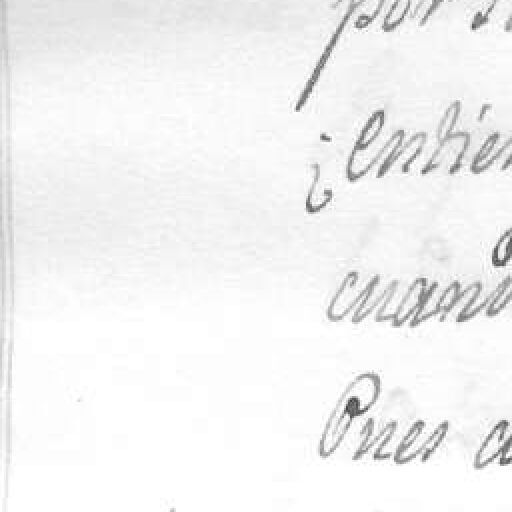 por
¿Entien
cuand
Pues